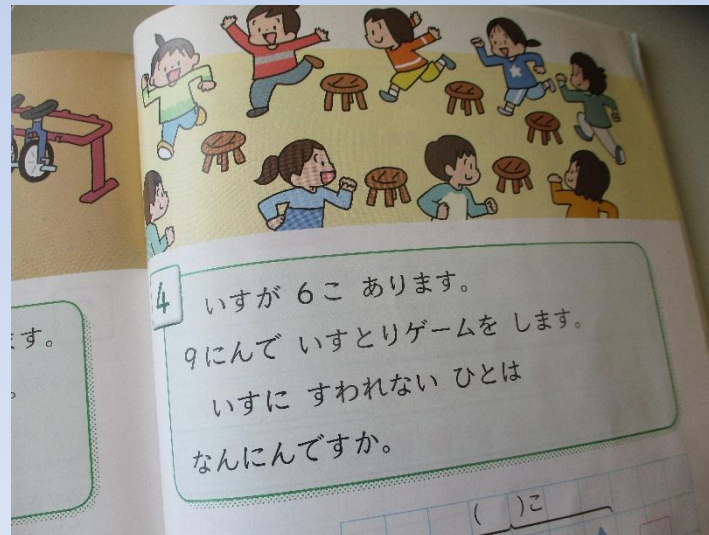 ます。
。
4
いすが 6こ あります。
9にんで いすとりゲームを します。
いすに すわれない ひとは
なんにんですか。
( )こ